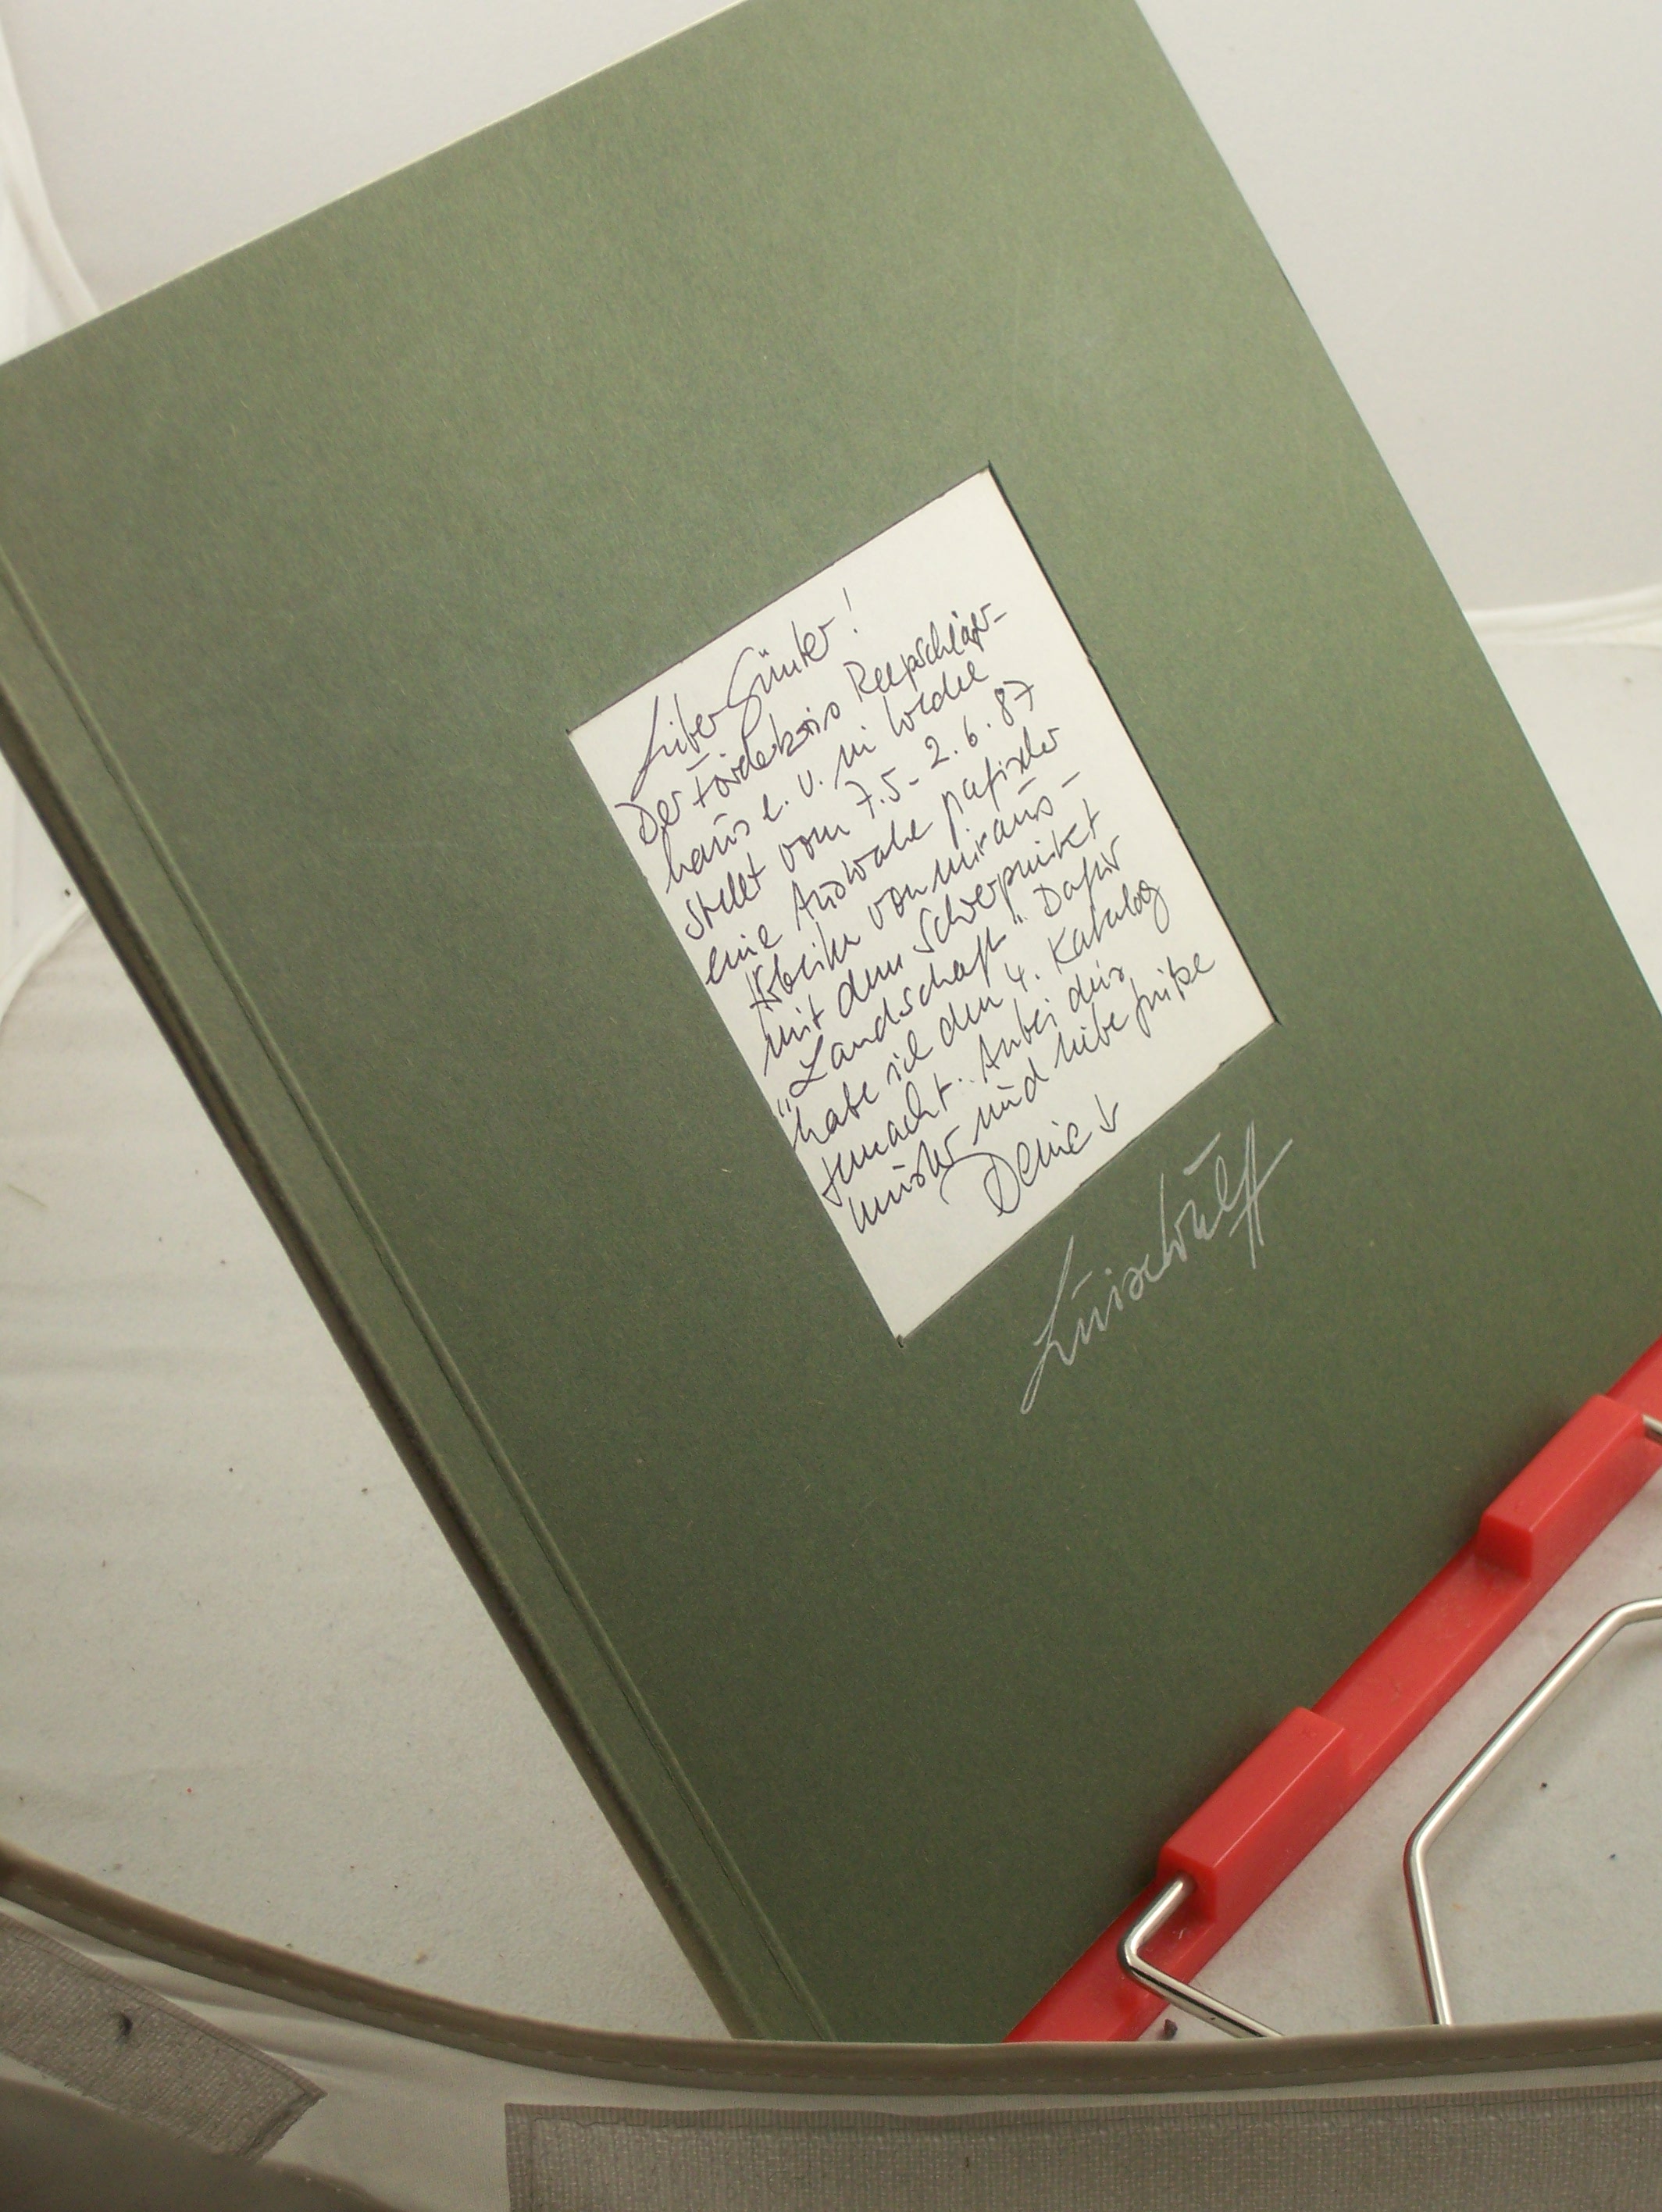 Lieber Günter!
Der Förderkreis Reepschläger-
haus e. V. in Wedel
stellt vom 7.5.- 2.6.87
eine Auswahl grafischer
Arbeiten von mir aus -
mit dem Schwerpunkt
"Landschaft". Dafür
habe ich den 4. Katalog
gemacht. Anbei dein
und liebe Grüße
Deine ↓